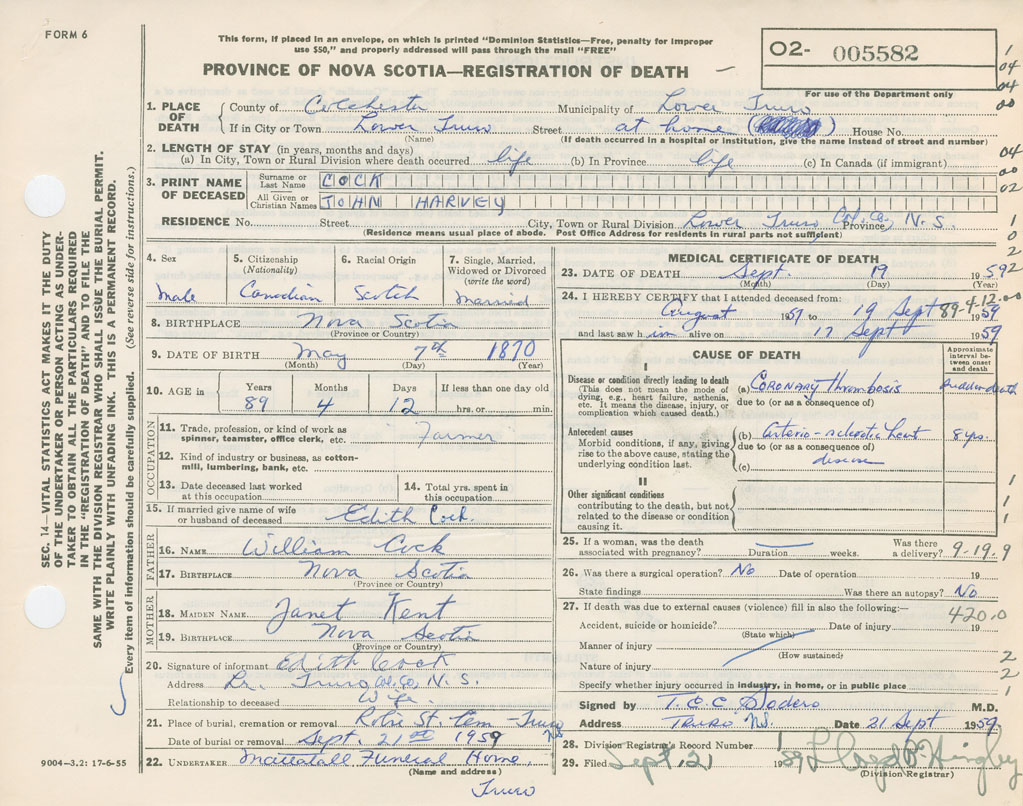 FORM 6
This form, if placed in an envelope, on which is printed "Dominion Statistics—Free, penalty for improper
use $50," and properly addressed will pass through the mail "FREE"
PROVINCE OF NOVA SCOTIA—REGISTRATION OF DEATH
O2- 005582
For use of the Department only
1. PLACE OF DEATH
County of Colchester Municipality of Lower Truro
If in City or Town Lower Truro Street at home ( ) House No.
(Name) (If death occurred in a hospital or institution, give the name instead of street and number)
2. LENGTH OF STAY (in years, months and days)
(a) In City, Town or Rural Division where death occurred life (b) In Province life (c) In Canada (if immigrant)
3. PRINT NAME OF DECEASED
Surname or Last Name COCK
All Given or Christian Names JOHN HARVEY
RESIDENCE No. Street City, Town or Rural Division Lower Truro Col. Co. Province N.S.
(Residence means usual place of abode. Post Office Address for residents in rural parts not sufficient)
4. Sex Male
5. Citizenship (Nationality) Canadian
6. Racial Origin Scotch
7. Single, Married, Widowed or Divorced (write the word) Married
8. BIRTHPLACE Nova Scotia
(Province or Country)
9. DATE OF BIRTH May 7th 1870
(Month) (Day) (Year)
10. AGE in Years 89 Months 4 Days 12 If less than one day old hrs. or min.
OCCUPATION
11. Trade, profession, or kind of work as spinner, teamster, office clerk, etc. Farmer
12. Kind of industry or business, as cotton-mill, lumbering, bank, etc.
13. Date deceased last worked at this occupation
14. Total yrs. spent in this occupation
15. If married give name of wife or husband of deceased Edith Cock
FATHER
16. NAME William Cock
17. BIRTHPLACE Nova Scotia
(Province or Country)
MOTHER
18. MAIDEN NAME Janet Kent
19. BIRTHPLACE Nova Scotia
(Province or Country)
20. Signature of informant Edith Cock
Address Lr. Truro Col. Co. N.S.
Relationship to deceased Wife
21. Place of burial, cremation or removal Robie St. Cem - Truro NS
Date of burial or removal Sept. 21st 1959
22. UNDERTAKER Mattatall Funeral Home,
(Name and address)
Truro
9004-3.2: 17-6-55
MEDICAL CERTIFICATE OF DEATH
23. DATE OF DEATH Sept. 19 1959
(Month) (Day) (Year)
24. I HEREBY CERTIFY that I attended deceased from:
August 1957 to 19 Sept 1959
89-4-12.00
and last saw him alive on 17 Sept 1959
CAUSE OF DEATH
Approximate interval between onset and death
I
Disease or condition directly leading to death
(This does not mean the mode of dying, e.g., heart failure, asthenia, etc. It means the disease, injury, or complication which caused death.)
(a) Coronary thrombosis sudden death
due to (or as a consequence of)
Antecedent causes
Morbid conditions, if any, giving rise to the above cause, stating the underlying condition last.
(b) Arterio-sclerotic heart 8 yrs.
due to (or as a consequence of)
disease
(c)
II
Other significant conditions
contributing to the death, but not related to the disease or condition causing it.
25. If a woman, was the death associated with pregnancy? Duration weeks. Was there a delivery?
9-19.9
26. Was there a surgical operation? No Date of operation 19
State findings Was there an autopsy? No
27. If death was due to external causes (violence) fill in also the following:—
420.0
Accident, suicide or homicide? Date of injury 19
(State which)
Manner of injury
(How sustained)
Nature of injury
Specify whether injury occurred in industry, in home, or in public place
Signed by T.C.C. Sodero M.D.
Address Truro NS. Date 21 Sept 1959
28. Division Registrar's Record Number
29. Filed Sept. 21 1959 Lloyd P Hingley
(Division Registrar)
1
04
04
00
04
00
02
1
0
2
2
1
1
1
2
2
1
SEC. 14—VITAL STATISTICS ACT MAKES IT THE DUTY
OF THE UNDERTAKER OR PERSON ACTING AS UNDER-
TAKER TO OBTAIN ALL THE PARTICULARS REQUIRED
IN THE "REGISTRATION OF DEATH" AND TO FILE THE
SAME WITH THE DIVISION REGISTRAR WHO SHALL ISSUE THE BURIAL PERMIT.
WRITE PLAINLY WITH UNFADING INK. THIS IS A PERMANENT RECORD.
Every item of information should be carefully supplied. (See reverse side for instructions.)